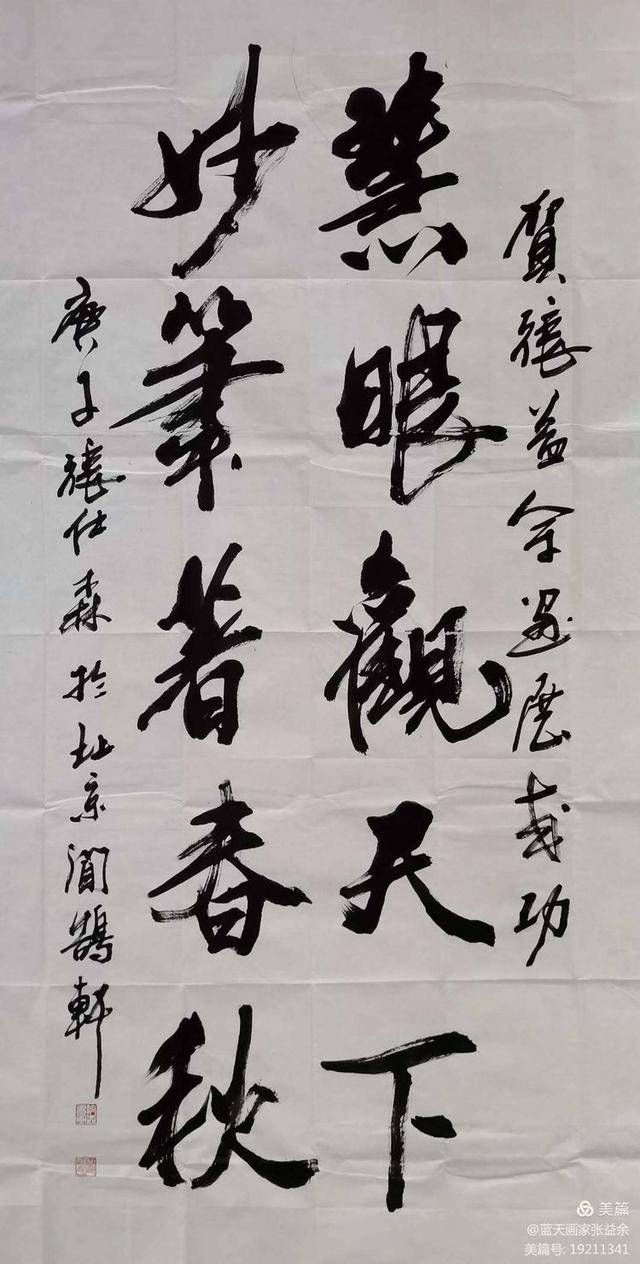 賀張益余画展成功
慧眼觀天下
妙筆著春秋
庚子張仕森於北京闻鵲軒
美篇
@蓝天画家张益余
美篇号: 19211341